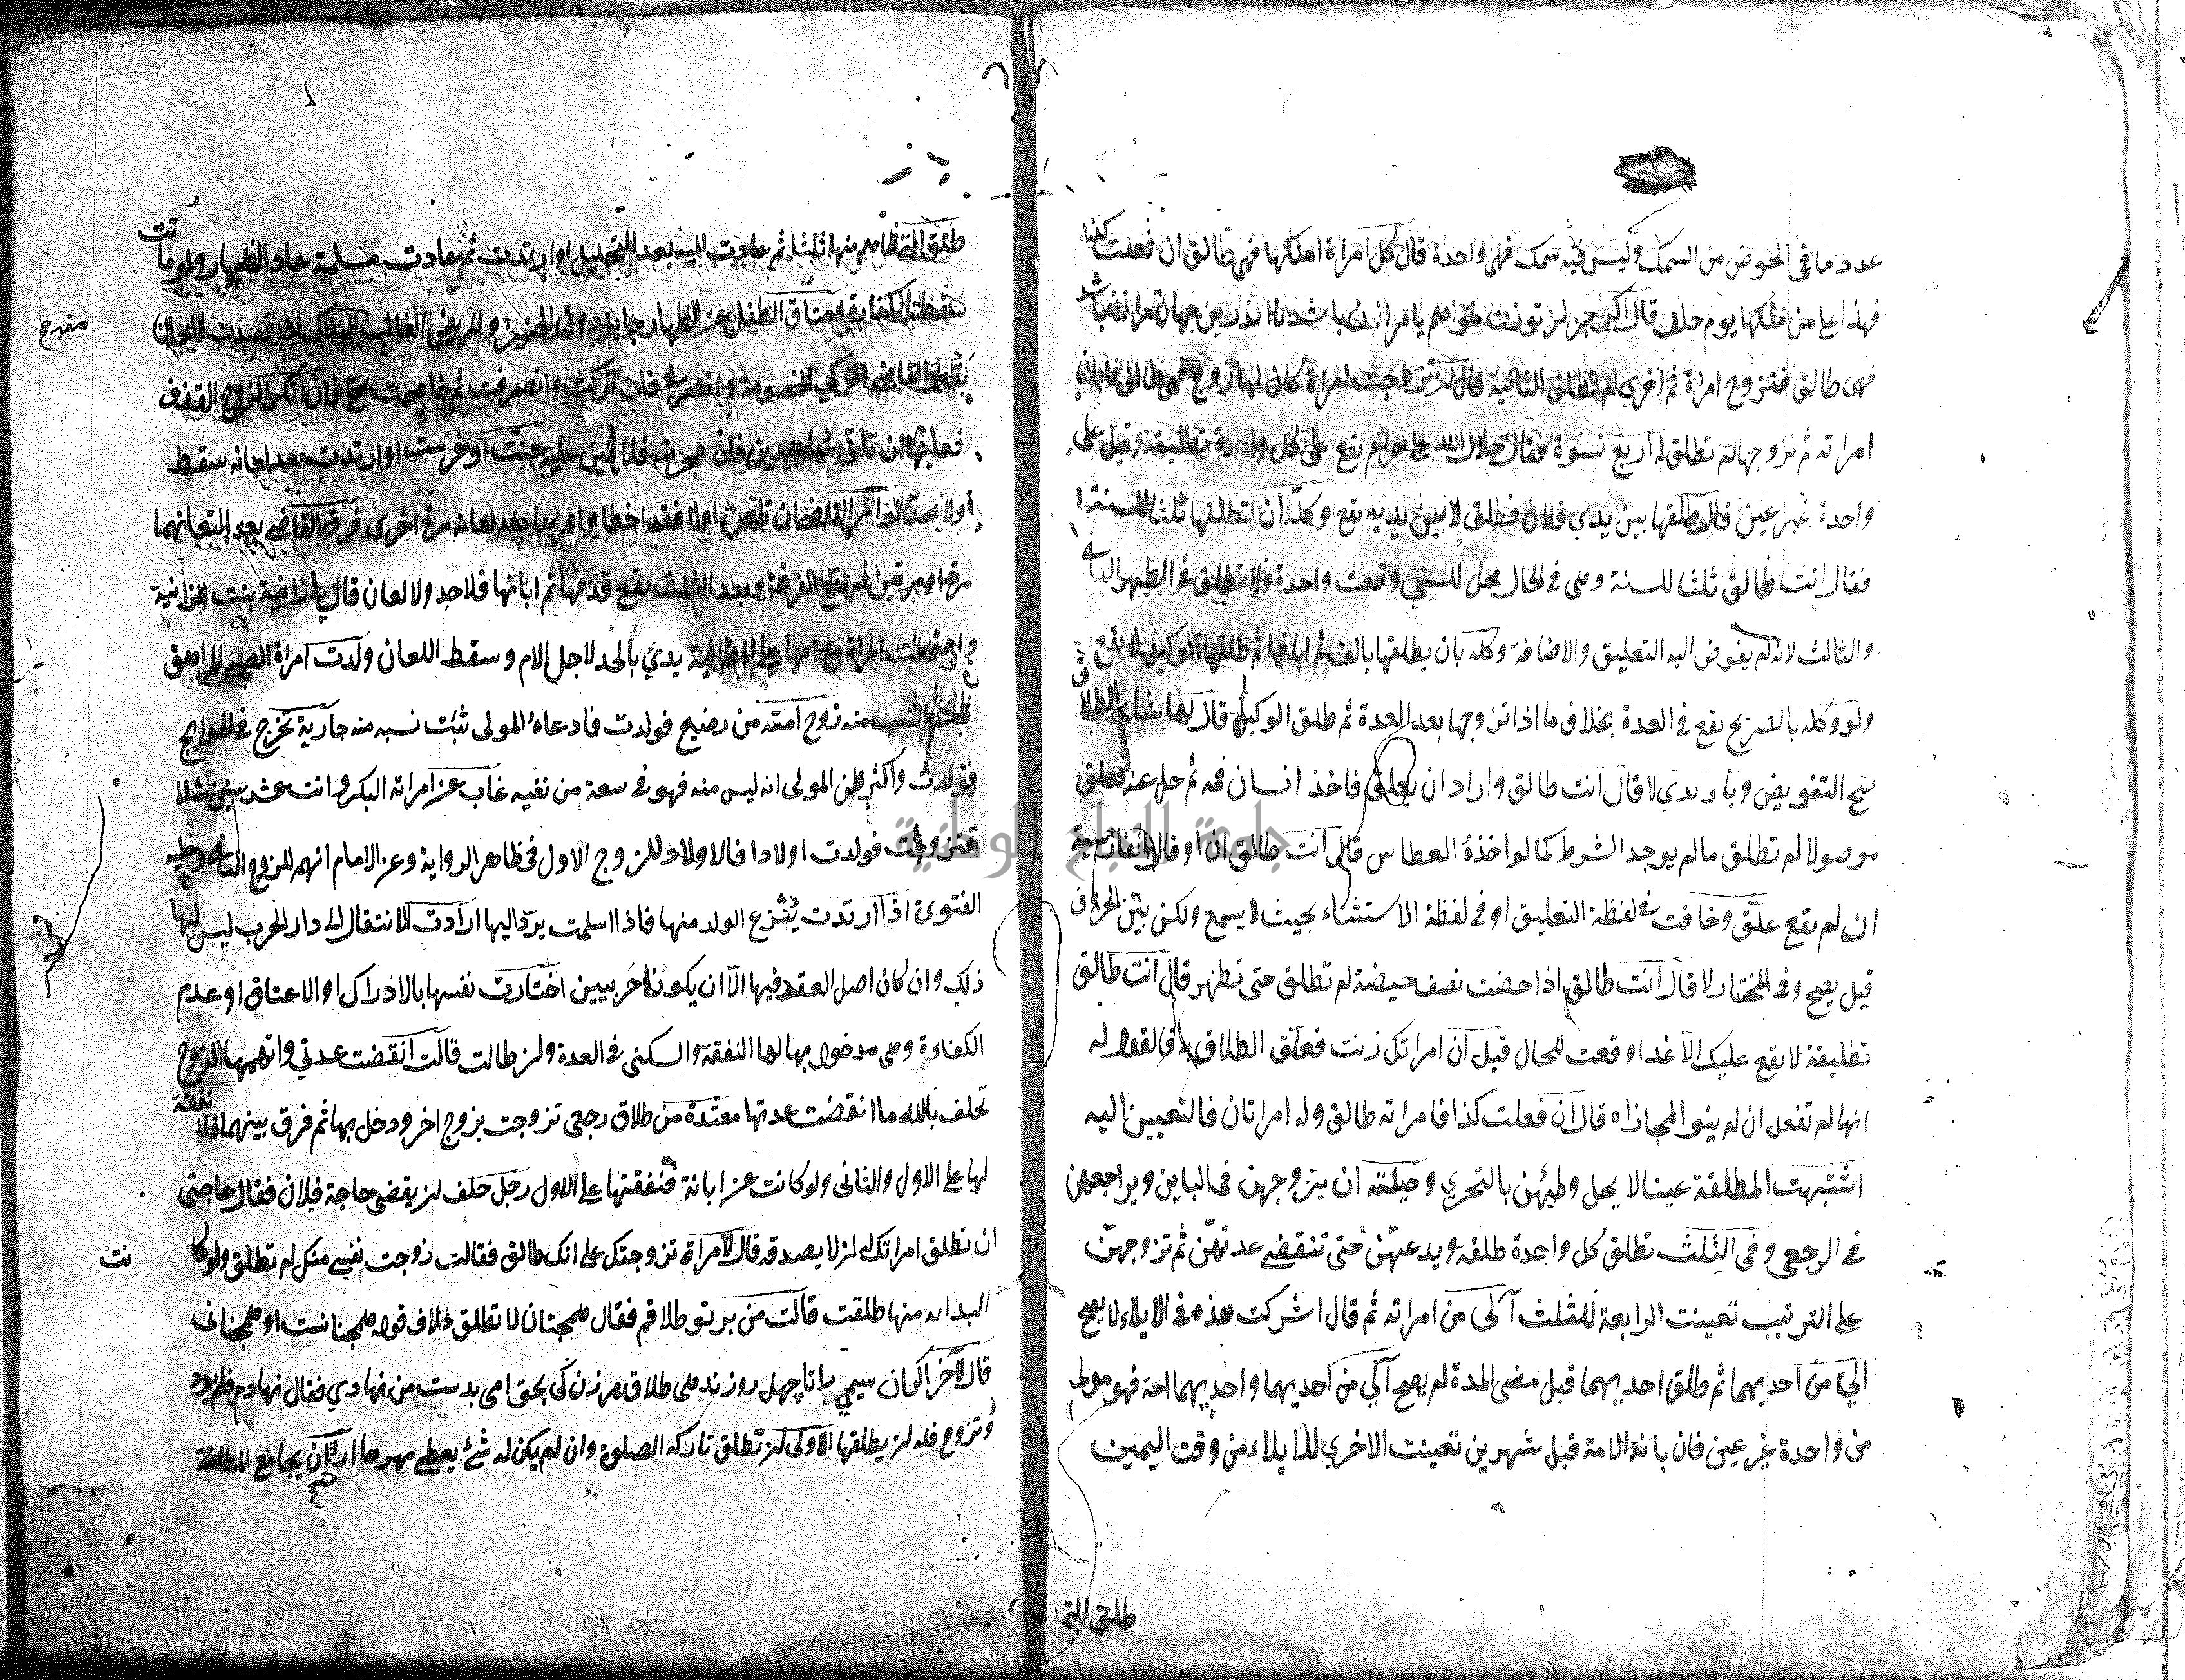 عدد ما في الحوض من السمك وليس فيه سمك فهي واحدة قال كل امراة املكها فهي طالق ان فعلت كذا
فهذا على من ملكها يوم حلف قال
فهي طالق فتزوج امراة ثم اخري لم تطلق الثانية قال ان تزوجت امراة كان لها زوج فهي طالق فابان
امراته ثم تزوجها لم تطلق له اربع نسوة فقال حلال الله علي حرام يقع على كل واحدة تطليقة وقيل على
واحدة غير عين قال طلقها بين يدي فلان فطلق لا بين يديه يقع وكله ان تطلقها ثلثا للسنة
فقال انت طالق ثلثا للسنة وهي في الحال محل للسني وقعت واحدة ولا تطلق في الطهر الثاني
والثالث لانه لم يفوض اليه التعليق والاضافة وكله بان يطلقها بالف ثم ابانها ثم طلقها الوكيل لا يقع
ولو وكله بالصريح يقع في العدة بخلاف ما اذا تزوجها بعد العدة ثم طلق الوكيل قال لها شاي الطلاق
صح التفويض وبا ريدي لا قال انت طالق واراد ان يعلق فاخذ انسان فمه ثم حل عنه فعلق
موصولا لم تطلق ما لم يوجد الشرط كما لو اخذه العطاس قال انت طالق ان او قال
ان لم يقع علق وخافت في لفظة التعليق او في لفظة الاستثناء بحيث لا يسمع ولكن بين الحروف
قيل يصح وفي المختار لا قال انت طالق اذا حضت نصف حيضة لم تطلق حتى تطهر قال انت طالق
تطليقة لا يقع عليك الا غدا وقعت للحال قيل ان امراتك زنت فعلق الطلاق
انها لم تفعل ان لم ينو المجازاه قال ان فعلت كذا فامراته طالق وله امراتان فالتعيين اليه
اشتبهت المطلقة عينا لا يحل وطيهن بالتحري وحيلته ان يتزوجهن في الباين ويراجعهن
في الرجعي وفي الثلث تطلق كل واحدة طلقة ويدعهن حتى تنقضي عدتهن ثم تزوجهن
على الترتيب تعينت الرابعة للثلث آلى من امراته ثم قال اشركت هذه في الايلاء لا يصح
آلى من احديهما ثم طلق احديهما قبل مضي المدة لم يصح آلى من احديهما واحديهما امة فهو مولي
من واحدة غير عين فان بانة الامة قبل شهرين تعينت الاخرى للايلاء من وقت اليمين
طلق التي
طلق التي ظاهر منها ثلثا ثم عادت اليه بعد التحليل او ارتدت ثم عادت مسلمة عاد الظهار ولو ماتت
سقطت الكفارة اعتاق الطفل عن الظهار جايز دون الجنين والمريض الغالب الهلاك اذا قصدت اللعان
يقول القاضي اتركي الخصومة وانصرفي فان تركت وانصرفت ثم خاصمت صح فان انكر الزوج القذف
فعليها ان تاتي شاهدين فان عجزت فلا يمين عليه جنت او خرست او ارتدت بعد لعانه سقط
ولا يحد لو امر القاضي ان تلاعن اولا فقد اخطا وامرها بعد لعانه مرة اخرى فرق القاضي بعد التعانهما
مرة او مرتين لم تقع الفرقة وبعد الثلث يقع قذفها ثم ابانها فلا حد ولا لعان قال يا زانية بنت الزانية
واجتمعت المراة مع امها على المطالبة يدي بالحد لاجل الام وسقط اللعان ولدت امراة الصبي المراهق
يثبت النسب منه زوج امته من رضيع فولدت فادعاه المولى ثبت نسبه منه جارية تخرج في الحوايج
فولدت واكثر ظن المولى انه ليس منه فهو في سعة من نفيه غاب عن امراته البكر وانت عشر سنين مثلا
فتزوجت فولدت اولادا فالاولاد للزوج الاول في ظاهر الرواية وعن الامام انهم للزوج الثاني وعليه
الفتوى اذا ارتدت ينتزع الولد منها فاذا اسلمت يرد اليها ارادت الانتقال الى دار الحرب ليس لها
ذلك وان كان اصل العقد فيها الا ان يكونا حربيين اختارت نفسها بالادراك او الاعتاق او عدم
الكفاءة وهي مدخول بها لها النفقة والسكنى في العدة ولن طالت قالت انقضت عدتي واتهمها الزوج
تحلف بالله ما انقضت عدتها معتدة من طلاق رجعي تزوجت بزوج اخر ودخل بها ثم فرق بينهما فلا نفقة
لها على الاول والثاني ولو كانت عن ابانة فنفقتها على الاول رجل حلف لن يقضي حاجة فلان فقال حاجتي
ان تطلق امراتك له لن لا يصدقه قال لامراة تزوجتك على انك طالق فقالت زوجت نفسي منك لم تطلق ولو كانت
البداه منها طلقت قالت من بر تو طلاقم فقال همچنان لا تطلق خلاف قوله همچنانست او همچنانی
قال لآخر اكران سيمي ما تا چهل روز ندهي طلاق هر زن كي بحق امي بدست من نهادي فقال نهادم فلم يود
وتزوج فله لن يطلقها الاولى لن تطلق تاركه الصلوة وان لم يكن له شئ يعطي مهرها اراد ان يجامع المطلقة